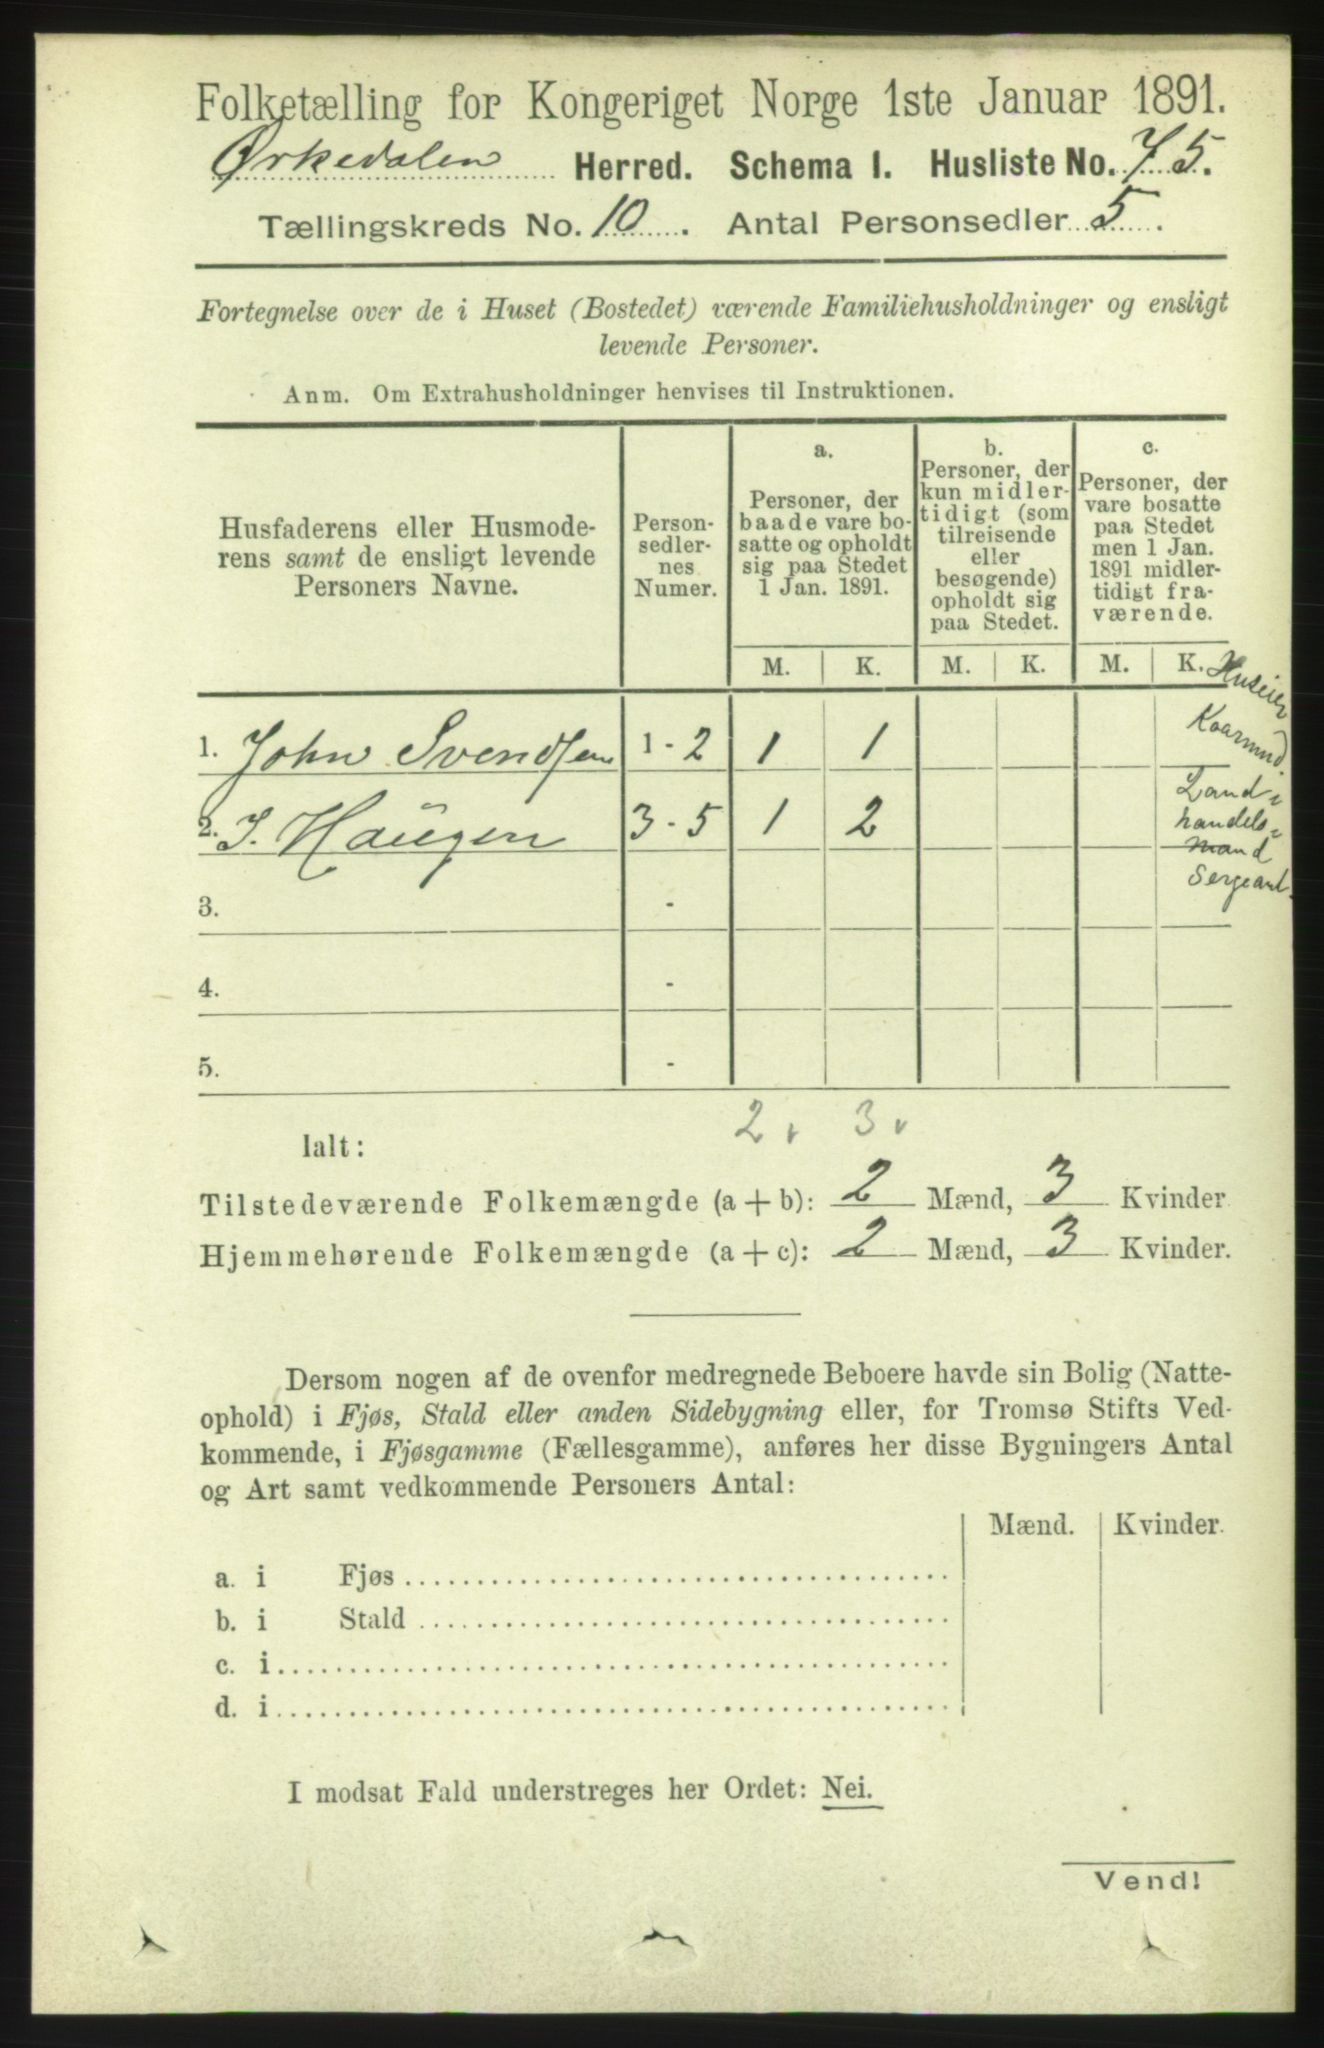 Folketælling for Kongeriget Norge 1ste Januar 1891.
Ørkedalen Herred. Schema I. Husliste No. 75.
Tællingskreds No. 10. Antal Personsedler 5.
Fortegnelse over de i Huset (Bostedet) værende Familiehusholdninger og ensligt
levende Personer.
Anm. Om Extrahusholdninger henvises til Instruktionen.
Husfaderens eller Husmode-
rens samt de ensligt levende
Personers Navne.
Person-
sedler-
nes
Numer.
a.
Personer, der
baade vare bo-
satte og opholdt
sig paa Stedet
1 Jan. 1891.
b.
Personer, der
kun midler-
tidigt (som
tilreisende
eller
besøgende)
opholdt sig
paa Stedet.
c.
Personer, der
vare bosatte
paa Stedet
men 1 Jan.
1891 midler-
tidigt fra-
værende.
M. K. M. K. M. K.
Huseier
1. John Svendsen 1 - 2 1 1
2. J. Haugen 3 - 5 1 2
Land-
handels-
mand
Sergeant.
3. -
4. -
5. -
2 3
Ialt:
Tilstedeværende Folkemængde (a + b): 2 Mænd, 3 Kvinder
Hjemmehørende Folkemængde (a + c): 2 Mænd, 3 Kvinder.
Dersom nogen af de ovenfor medregnede Beboere havde sin Bolig (Natte-
ophold) i Fjøs, Stald eller anden Sidebygning eller, for Tromsø Stifts Ved-
kommende, i Fjøsgamme (Fællesgamme), anføres her disse Bygningers Antal
og Art samt vedkommende Personers Antal:
Mænd. Kvinder.
a. i Fjøs
b. i Stald
c. i
d. i
I modsat Fald understreges her Ordet: Nei.
Vend!